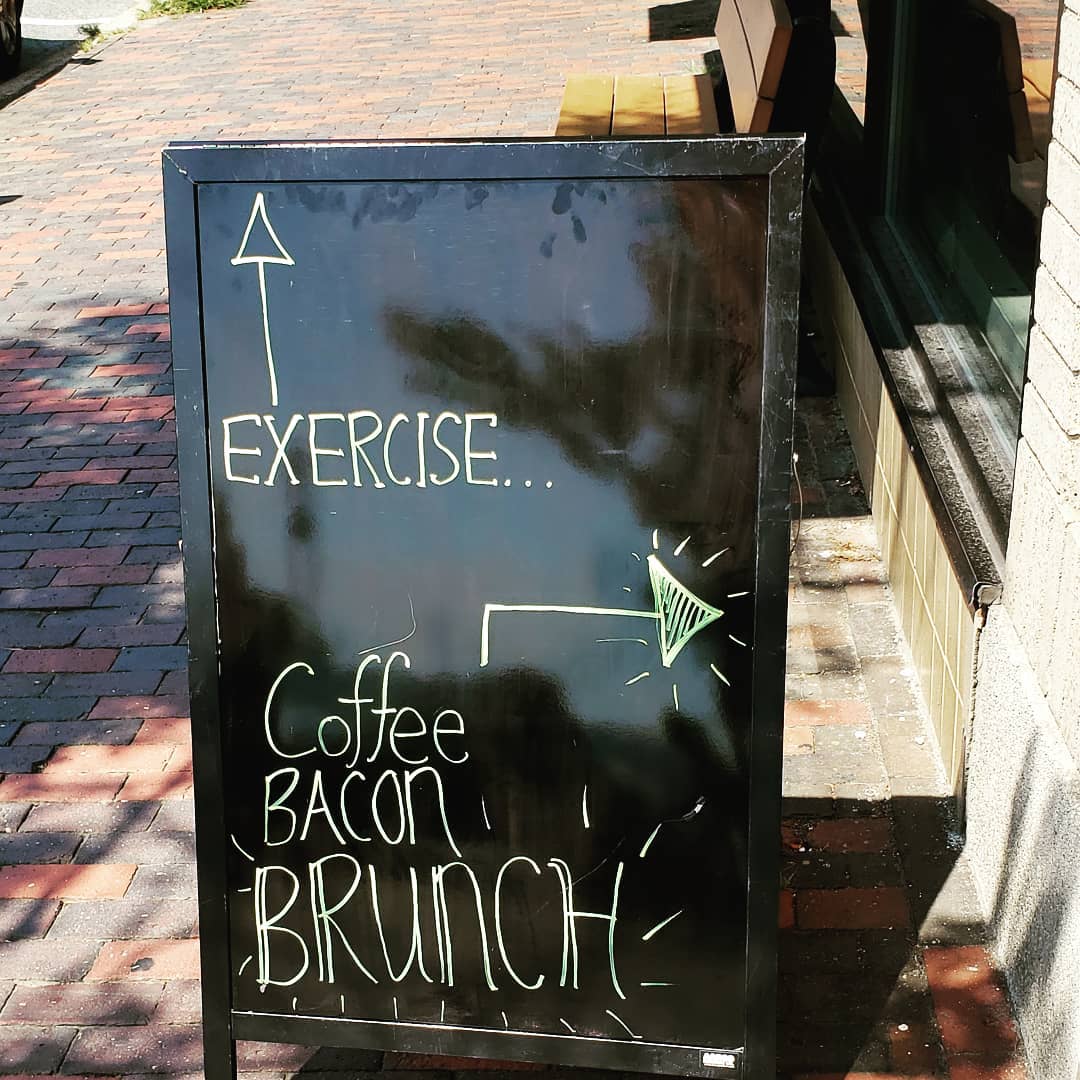 EXERCISE...
Coffee
BACON
BRUNCH